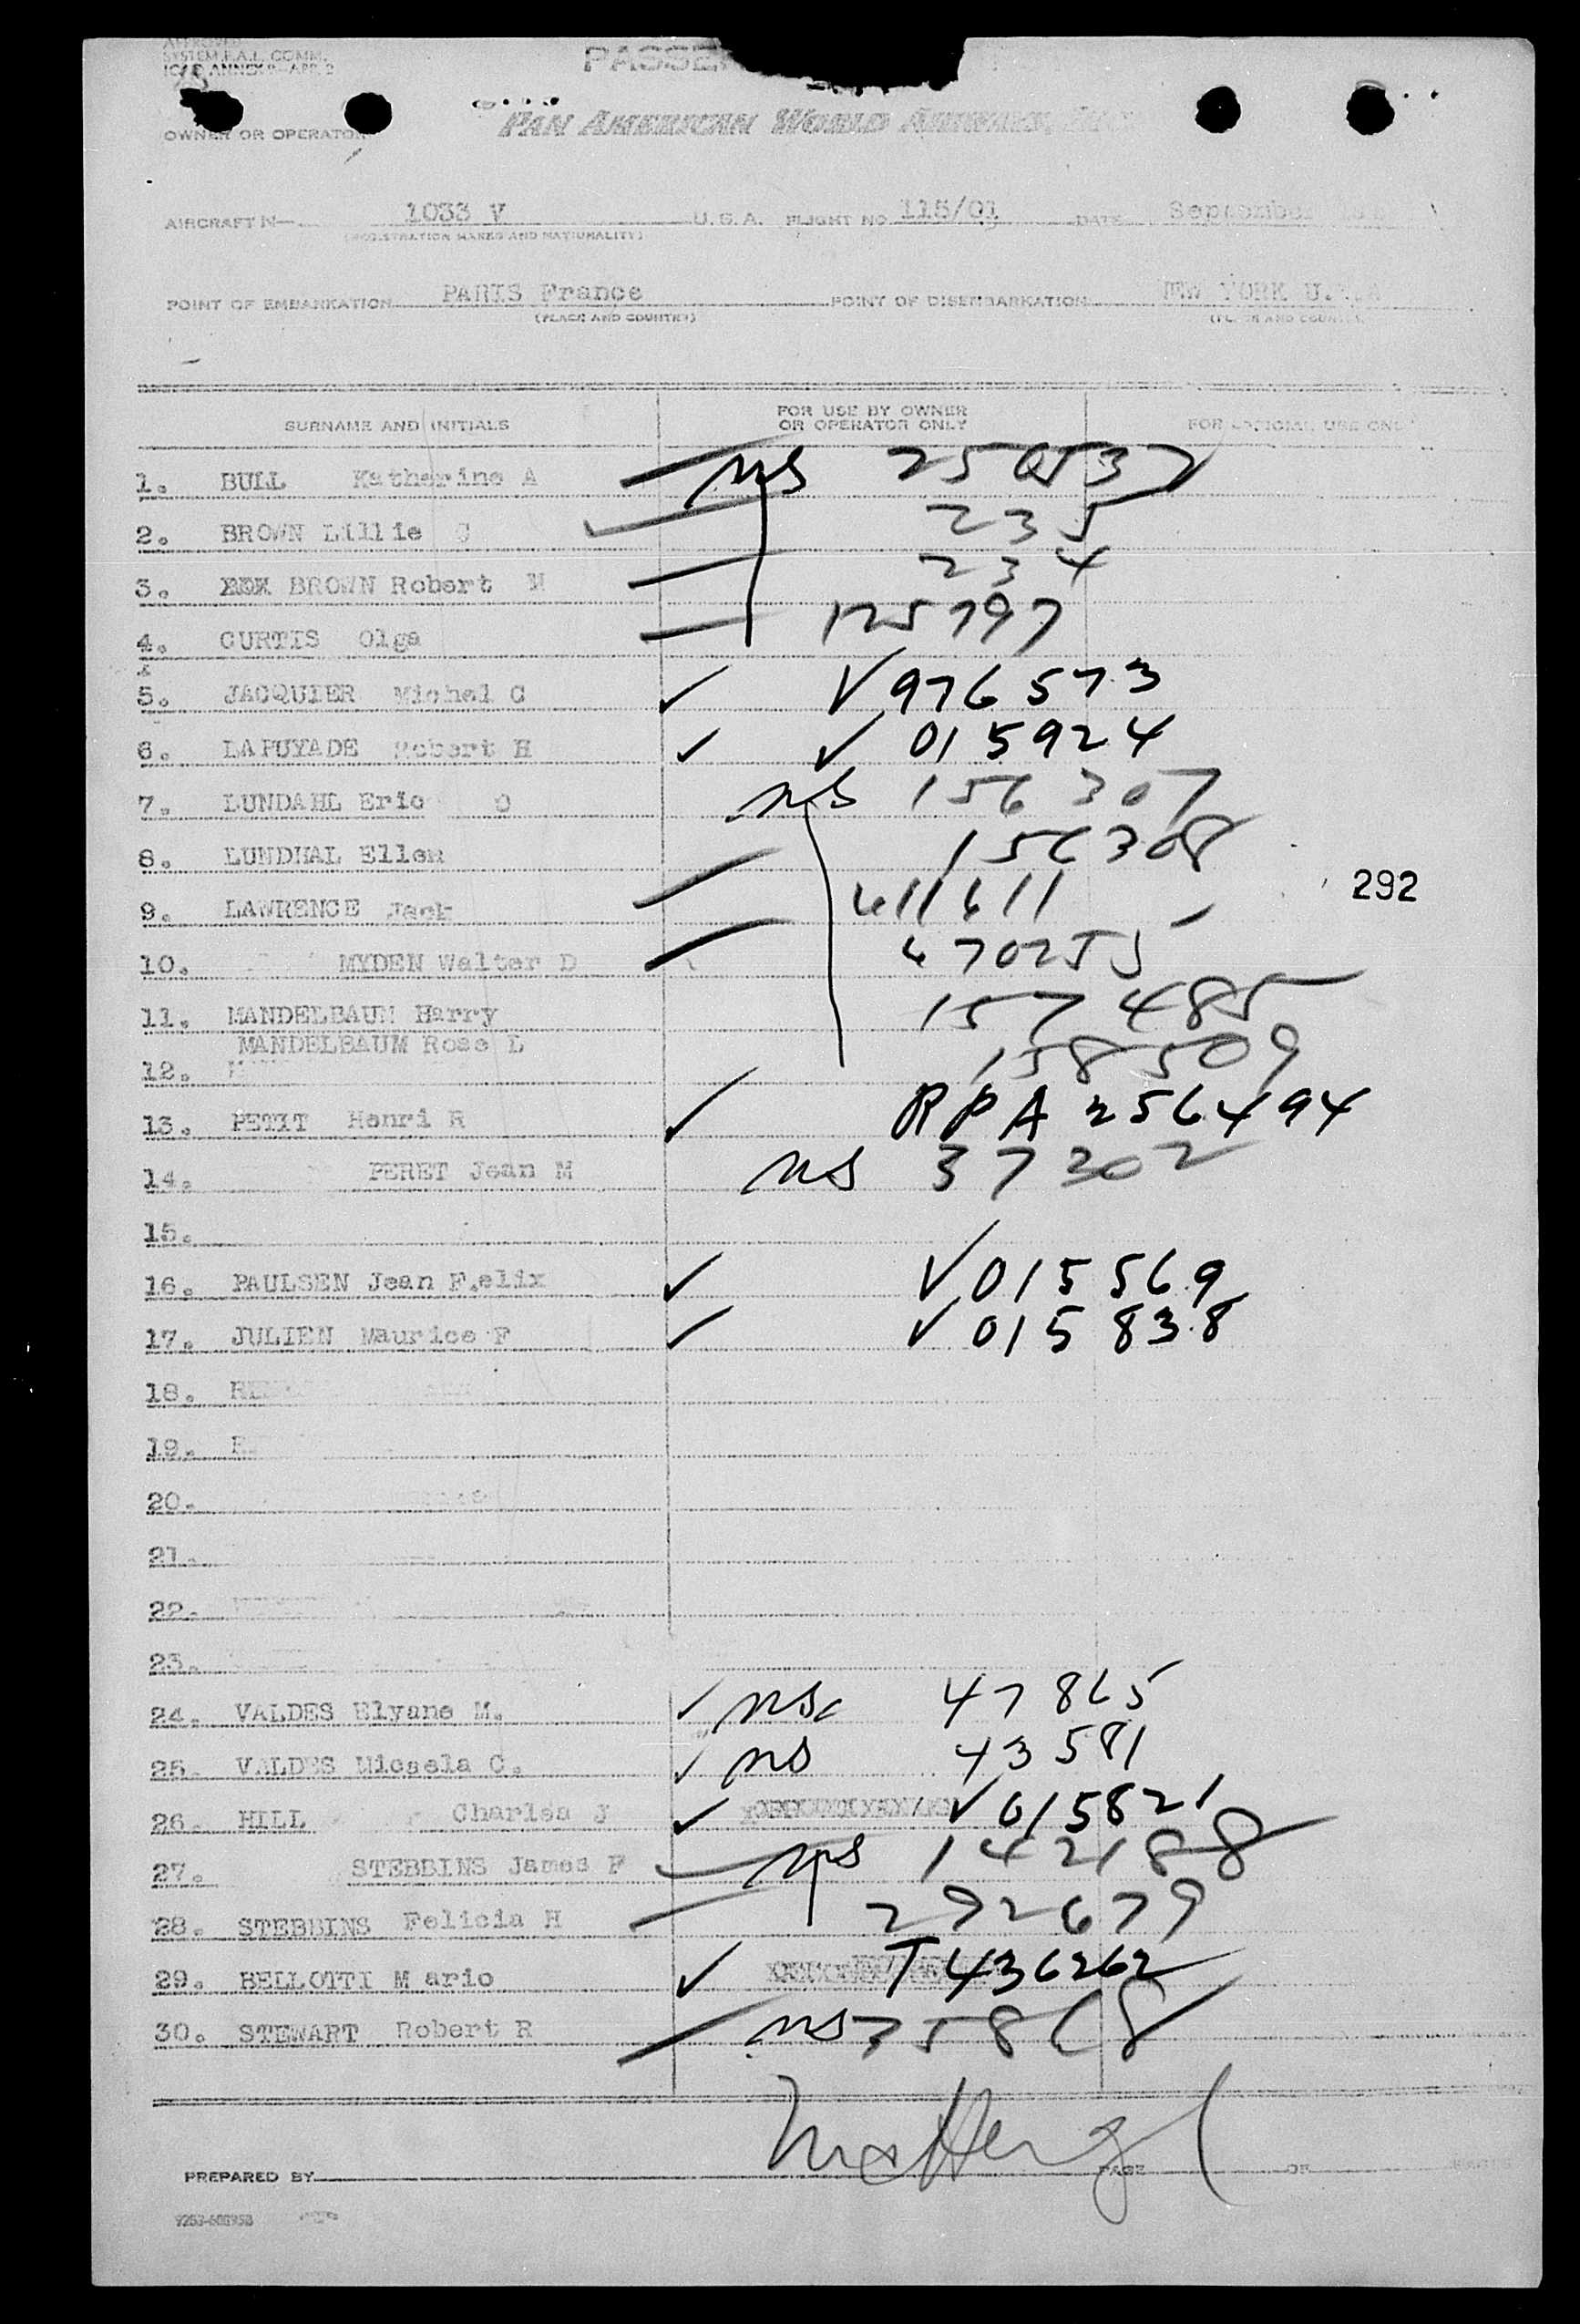 APPROVED
SYSTEM P.A.I. COMM.
ICAO ANNEX 9-APP. 2
OWNER OR OPERATOR
PAN AMERICAN WORLD AIRWAYS,
AIRCRAFT N— 1033 V U.S.A. FLIGHT NO. 115/01 DATE September
(REGISTRATION MARKS AND NATIONALITY)
POINT OF EMBARKATION PARIS France POINT OF DISEMBARKATION NEW YORK U.S.A
(PLACE AND COUNTRY) (PLACE AND COUNTRY)
SURNAME AND INITIALS FOR USE BY OWNER OR OPERATOR ONLY FOR OFFICIAL USE ONLY
1. BULL Katherine A ns
2. BROWN Lillie C 235
3. BROWN Robert M 234
4. CURTIS Olga 125797
5. JACQUIER Michel G ✓ V976573
6. LAPUYADE Robert H ✓ V 015924
7. LUNDAHL Eric O ns 156307
8. LUNDHAL Ellen 156308
292
9. LAWRENCE Jack 611611
10. MYDEN Walter D 670255
11. MANDELBAUM Harry 157485
MANDELBAUM Rose L
12. 158509
13. PETIT Henri R ✓ RPA 256494
14. PERET Jean M ns 37302
15.
16. PAULSEN Jean F.elix ✓ V015569
17. JULIEN Maurice F ✓ V015838
18.
19. R.
20.
21.
22.
23.
24. VALDES Elyane M. ✓ ns 47865
25. VALDES Micaela C. ✓ ns 43581
26. HILL Charles J ✓ V015821
27. STEBBINS James F ns 142188
28. STEBBINS Felicia H 292679
29. BELLOTTI M ario ✓ T436262
30. STEWART Robert R ns 35868
PREPARED BY PAGE OF PAGES